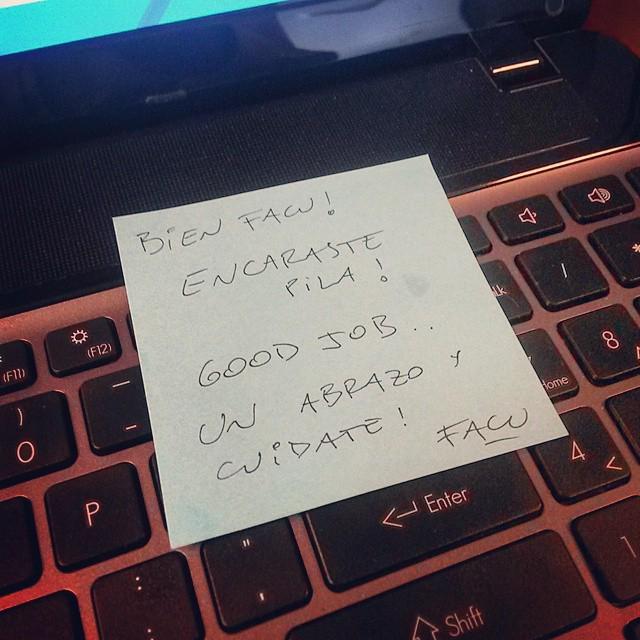 BIEN FACU!
ENCARASTE
PILA!
GOOD JOB..
UN ABRAZO Y
CUIDATE!
FACU
(F11)
(F12)
)
0
P
Enter
Shift
Home
/
8
4
<
1